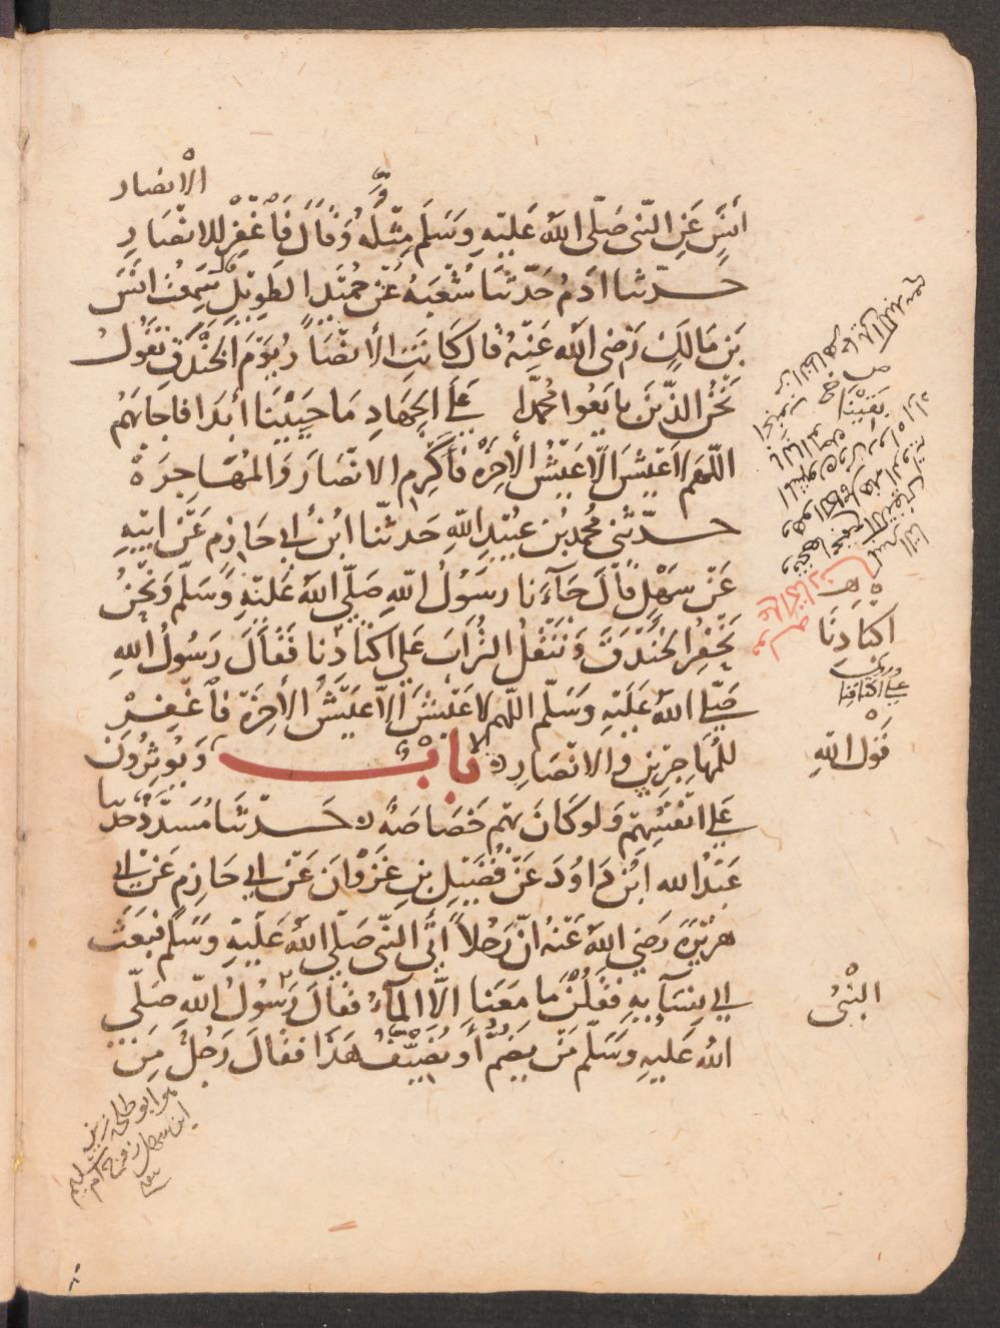 الأنصار
أنسٍ عن النبي صلى الله عليه وسلم مثله وقال فاغفر للانصار
حدثنا ادم حدثنا شعبة عن حميد الطويل سمعت انس
بن مالك رضي الله عنه قال كانت الأنصار يوم الخندق تقول
نحن الذين بايعوا محمدا على الجهاد ما حيينا أبدا فاجابهم
اللهم لا عيش الا عيش الأخره فأكرم الانصار والمهاجره
حدثني محمد بن عبيد الله حدثنا ابن أبي حازم عن ابيه
عن سهل قال جاءنا رسول الله صلى الله عليه وسلم ونحن
نحفر الخندق وننقل التراب على اكتادنا فقال رسول الله
صلى الله عليه وسلم اللهم لا عيش الا عيش الأخرة فاغفر
للمهاجرين والانصار باب ويوثرون
على انفسهم ولو كان بهم خصاصة حدثنا مسدد حدثنا
عبد الله ابن داود عن فضيل بن غزوان عن ابي حازم عن ابي
هريرة رضي الله عنه ان رجلا أتى النبي صلى الله عليه وسلم فبعث
الى نسآيه فقلن ما معنا الا المآء فقال رسول الله صلى
الله عليه وسلم من يضم أو يضيف هذا فقال رجل من
بقينا
اكتادنا
على اكتافنا
قول الله
النبي
هو ابو طلحة زيد
ابن سهل زوج ام سليم